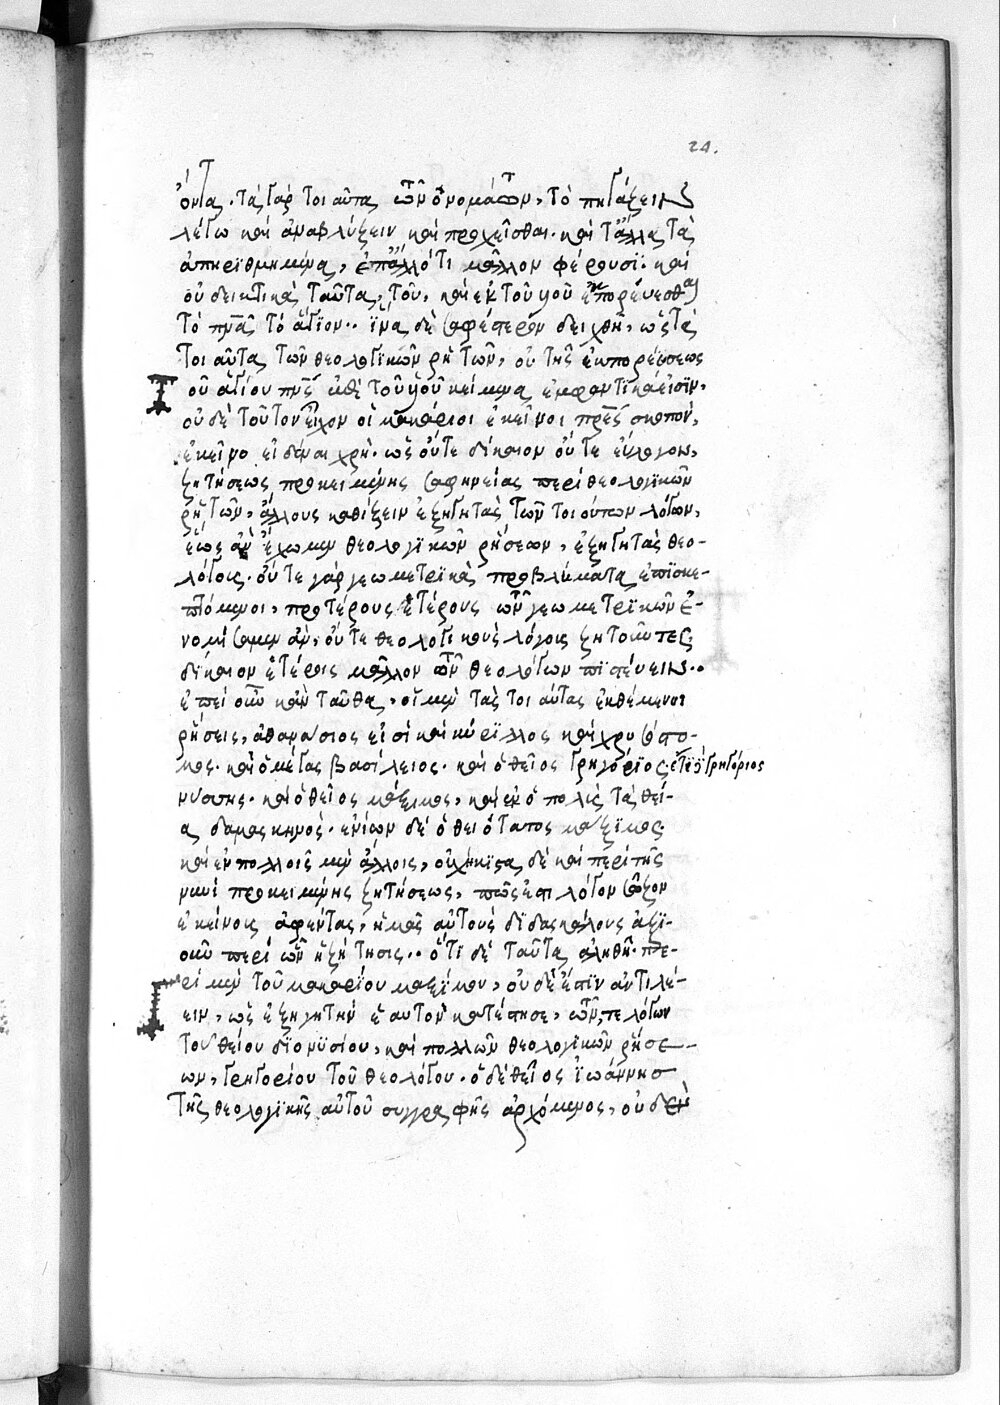 24.
όντα. τὰ γὰρ τοιαῦτα τῶν ὀνομάτων, τὸ πηγάζειν
λέγω καὶ ἀναβλύζειν καὶ προχεῖσθαι. καὶ τἄλλα τὰ
ἀπηριθμημένα, ἐπ' ἄλλό τι μᾶλλον φέρουσϊ. καὶ
οὐ δεικτικὰ ταῦτα, τοῦ, καὶ ἐκ τοῦ υἱοῦ ἐκπορεύεσθαι
τὸ πνα τὸ ἅγϊον.. ἵνα δὲ σαφέστερον δειχθῆ, ὡς τὰ
τοιαῦτα τῶν θεολογϊκῶν ῥητῶν, οὐ τῆς ἐκπορεύσεως
τοῦ ἁγίου πνς ἐκ τοῦ υἱοῦ κείμενα ἐμφαντϊκά εἰσϊν,
οὐδὲ τοῦτον εἶχον οἱ μακάριοι ἐκεῖνοι πρες σκοπόν,
ἐκεῖνο εἰδέναι χρή. ὡς οὔτε δίκαιον οὔτε εὔλογον,
ζητήσεως προκειμένης σαφηνείας περὶ θεολογϊκῶν
ῥητῶν, ἄλλους καθίζειν ἐξηγητὰς τῶν τοιούτων λόγων,
ἕως ἂν ἔχωμεν θεολογϊκῶν ῥήσεων, ἐξηγητὰς θεο-
λόγοις. οὔτε γὰρ γεωμετρϊκὰ προβλήματα ἐπϊσκε-
πτόμενοι, προτέρους ἑτέρους τῶν γεωμετρϊκῶν ἐ-
νομίσαμεν ἂν, οὔτε θεολογικοὺς λόγοις ζητοῦντες,
δίκαιον ἑτέροις μᾶλλον τῶν θεολόγων πϊστεύειν..
ἐπεὶ οὖν κἀνταῦθα, οἱ μὲν τὰς τοιαύτας ἐκθέμενοι
ῥήσεις, ἀθανάσιος εἰσὶ καὶ κύρϊλλος καὶ χρυσόστο-
μος. καὶ ὁ μέγας βασίλειος. καὶ ὁ θεῖος γρηγόρϊος. ἔτι ὁ γρηγόριος
νύσσης. καὶ ὁ θεῖος μάξιμος, καὶ ἐκ ὁ πολὺς τὰ θεῖ-
α δαμασκηνός. ἐνίων δὲ ὁ θειότατος μάξϊμος
καὶ ἐν πολλοῖς μὲν ἄλλοις, οὐχήκϊστα δὲ καὶ περὶ τῆς
νυνὶ προκειμένης ζητήσεως, πῶς ἔστι λόγον σῶζον
ἐκείνοις ἀφέντας, ἡμᾶς αὐτοὺς διδασκάλους ἀξϊ-
οῦν περὶ ὧν ἡ ζήτησις.. ὅτι δὲ ταῦτα ἀληθῆ. πε-
ρὶ μὲν τοῦ μακαρίου μαξίμου, οὐδὲ ἔστϊν ἀντιλέ-
ειν, ὡς ἐξηγητὴν ἑαυτὸν κατέστησε, τῶν τε λόγων
τοῦ θείου δϊονυσίου, καὶ πολλῶν θεολογϊκῶν ῥήσε-
ων, γρηγορίου τοῦ θεολόγου. ὁ δὲ θεῖος ἰωάννης
τῆς θεολογϊκῆς αὐτοῦ συγγραφῆς ἀρχόμενος, οὐδὲν